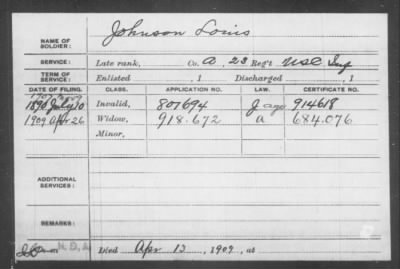 NAME OF SOLDIER: Johnson Louis
SERVICE: Late rank, Co. A, 23 Reg't USC Inf
TERM OF SERVICE: Enlisted , 1 Discharged , 1
DATE OF FILING. CLASS. APPLICATION NO. LAW. CERTIFICATE NO.
1890 July 10 Invalid, 807694 J 914618
1909 Apr 26 Widow, 918.672 a 684.076
Minor,
ADDITIONAL SERVICES:
REMARKS:
Died Apr 13, 1909, at